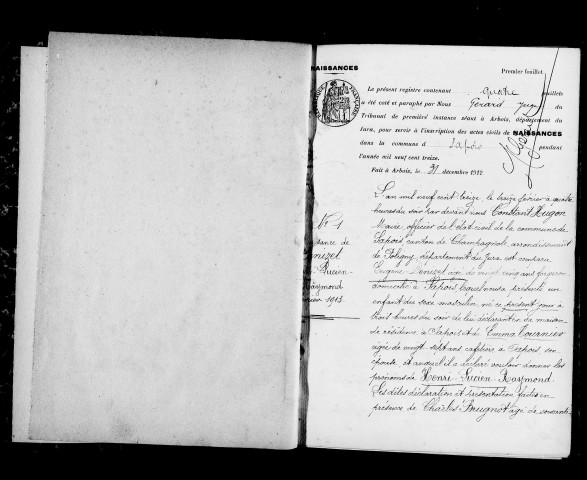 NAISSANCES
Premier feuillet.
Le présent registre contenant quatre feuillets
a été coté et paraphé par Nous Gérard Juge du
Tribunal de première instance séant à Arbois, département du
Jura, pour servir à l'inscription des actes civils de NAISSANCES
dans la commune d Sapois pendant
l'année mil neuf cent treize.
Fait à Arbois, le 31 décembre 1912
RÉPUBLIQUE FRANÇAISE
N° 1
ssance de
nezet
Lucien
Raymond
rier 1913
L'an mil neuf cent treize le treize février à quatre
heures du soir par devant nous Constant Hugon
Maire, officier de l'état civil de la commune de
Sapois canton de Champagnole, arrondissement
de Poligny, département du Jura est comparu
Eugène age de vingt cinq ans forgeron
domicilié à Sapois lequel nous a présenté un
enfant du sexe masculin né ce présent jour à
trois heures du soir de lui déclarant en sa maison
de résidence à Sapois et de Emma Tournier
agée de vingt sept ans à Sapois son
épouse et auquel il a déclaré vouloir donner les
prénoms de Henri Lucien Raymond
Les dites déclaration et présentation faites en
présence de Charles Beugnot agé de soixante